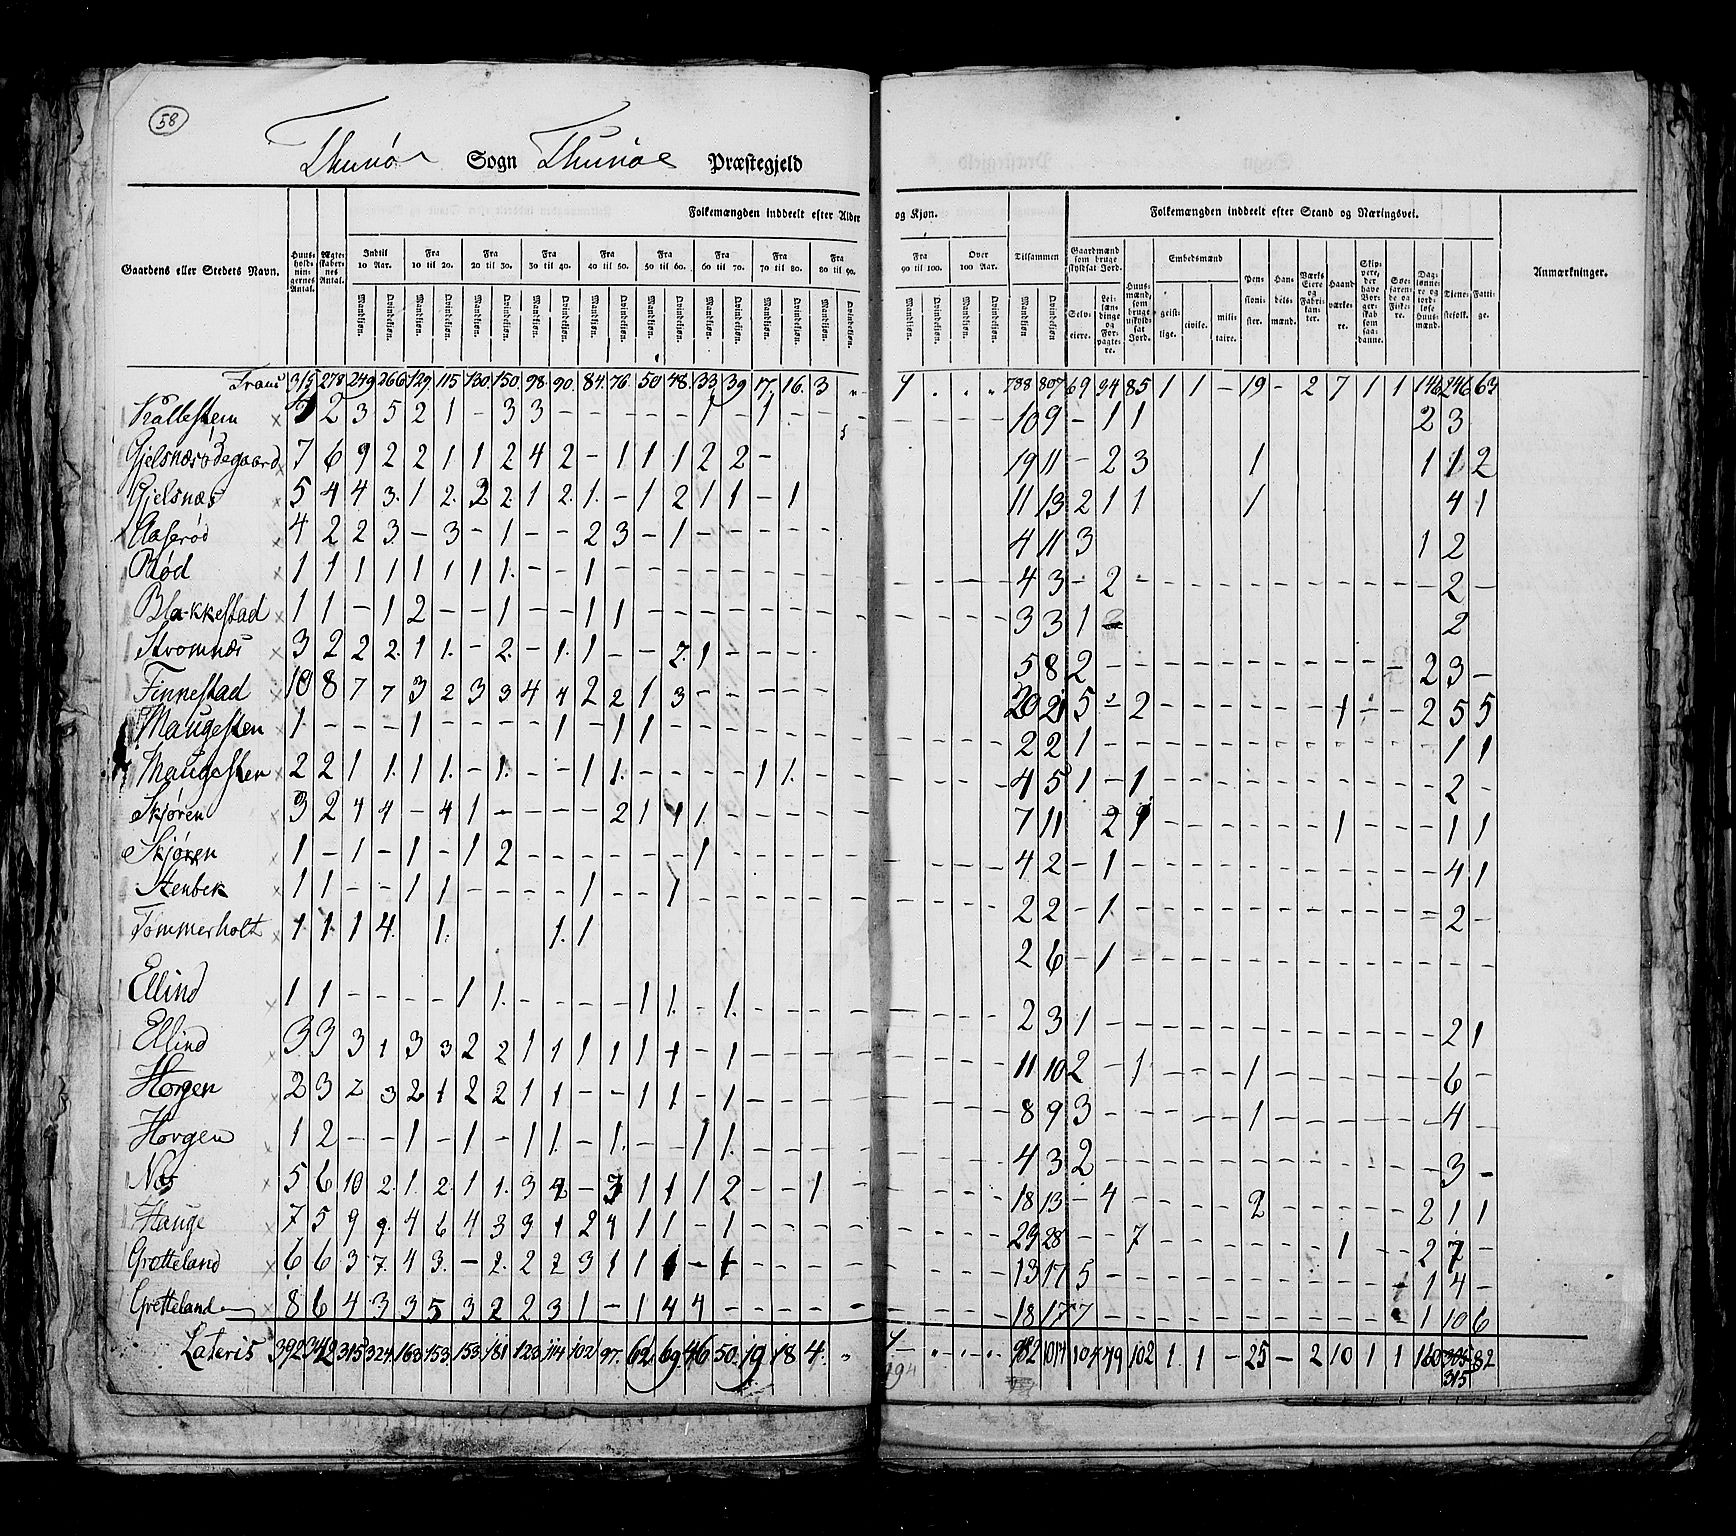 58
Thunøe Sogn Thunøe Præstegjeld
Folkemængden inddeelt efter Alder og Kjøn. Folkemængden inddeelt efter Stand og Næringsvei.
Gaardens eller Stedets Navn. Huus-holdnin-gernes Antal. Ægte-skaber-nes Antal. Indtil 10 Aar. Fra 10 til 20. Fra 20 til 30. Fra 30 til 40. Fra 40 til 50. Fra 50 til 60. Fra 60 til 70. Fra 70 til 80. Fra 80 til 90. Fra 90 til 100. Over 100 Aar. Tilsammen Gaardmænd som bruge skyldsat Jord. Huus-mænd, som bruge uskyld-sat Jord. Embedsmænd Pen-sioni-ster. Han-dels-mænd. Værks Eiere og Fabri-kanter. Haand værke-re. Skip-pere, der have Bor-ger-skab som saa-danne. Søe-farende og Fiske-re. Dag-lønne-re og jord-løse Huus-mænd. Tjene-stefolk. Fatti-ge. Anmærkninger.
Mandkjøn. Qvindekjøn. Mandkjøn. Qvindekjøn. Mandkjøn. Qvindekjøn. Mandkjøn. Qvindekjøn. Mandkjøn. Qvindekjøn. Mandkjøn. Qvindekjøn. Mandkjøn. Qvindekjøn. Mandkjøn. Qvindekjøn. Mandkjøn. Qvindekjøn. Mandkjøn. Qvindekjøn. Mandkjøn. Qvindekjøn. Mandkjøn. Qvindekjøn. Selv-eiere. Lei-lænd-inge og For-pagte-re. geist-lige. civile. mili-taire.
Trans 315 278 249 266 129 115 130 150 98 90 84 76 50 48 33 39 17 16 3 " 1 . . . 788 807 69 94 85 1 1 - 19 - 2 7 1 1 146 246 63
Kallesten 3 2 3 5 2 1 - 3 3 - - - - - 1 - 1 - - 10 9 - 1 1 2 3
Gjelsnæsødegaard 7 6 9 2 2 1 1 2 4 2 - 1 1 1 2 2 - 19 11 - 2 3 1 1 1 2
Gjelsnæs 5 4 4 3 1 2 2 2 1 2 1 - 1 2 1 1 - 1 11 13 2 1 1 1 4 1
Aaserød 4 2 2 3 - 3 - 1 - - 2 3 - 1 - - - - - 4 11 3 1 2
Rød 1 1 1 1 1 1 1 1 - - 1 - - - - - - - - 4 3 - 2 - - - - - - - - - - - 2 -
Blakkestad 1 1 - 1 2 - - 1 - - 1 1 - - - - - - - 3 3 1 2
Stromnæs 3 2 2 2 1 1 - 2 - 1 1 - - 2 1 - - - - 5 8 2 - - - - - - - - - - - 2 3 -
Finnestad 10 8 7 7 3 2 3 3 4 4 2 2 1 3 - - - - - 20 21 5 - 2 - - - - - - 1 - - 2 5 5
Maugesten 1 - - - 1 - - - - 1 - 1 1 - - - - - - 2 2 1 - - - - - - - - - - - - 1 1
Maugesten 2 2 1 1 1 1 - 1 - - 1 1 - - - - 1 1 - 4 5 1 - 1 - - - - - - - - - - 2 -
Skjøren 3 2 4 4 - 4 1 - - - - 2 1 1 1 - - - - 7 11 2 1 - - - - - - 1 - - - 1 1
Skjøren 1 - 1 - 1 - 1 2 - - - - - - 1 - - - - 4 2 - 1 - - - - - - - - - - - 4 1
Stenbek 1 1 - - 1 1 - - - - 1 - - 1 - - - - - 2 2 - 1 - - - - - - - - - - - 2 -
Tømmerholt 1 1 1 4 1 1 1 2 6 - 1 - - - - - - - - - - - - - -
Ellind 1 1 - - - - 1 1 - - - - 1 1 - 1 - - - 2 3 1 - - - - - - - - - - - - 2 1
Ellind 3 3 3 1 3 3 2 2 1 1 1 1 1 1 - 1 - - - 11 10 2 - 1 - - - 1 - - - - - - 6 -
Horgen 2 3 2 3 2 1 2 2 1 1 - - 1 1 - 1 - - - 8 9 3 - - - - - 1 - - - - - - 4 -
Horgen 1 2 - - 1 - 1 - 1 1 - 1 - - 1 1 - - - 4 3 2 - - - - - - - - - - - - 3 -
Næs 5 6 10 2 1 2 1 1 3 4 - 3 1 1 1 2 - - 1 18 13 - 4 - - - - 2 - - - - - 2 1 1
Hauge 7 5 9 9 4 6 4 3 3 1 2 4 1 1 - 1 - - - 29 28 - - 7 - - - - - - 1 - - 2 7 -
Grotteland 6 6 3 7 4 3 - 2 2 2 3 1 1 1 - 1 - - - 13 17 5 - - - - - - - - - - 1 1 4 -
Gretteland 8 6 4 3 3 5 3 2 2 3 1 - 1 4 4 - - - - 18 17 7 - - - - - - - - - - 1 10 6
Lateris 392 342 315 324 163 153 153 181 123 114 102 97 62 69 46 50 19 18 4 " 1 . . . 982 1014 104 79 102 1 1 - 25 - 2 10 1 1 160 305 82
315